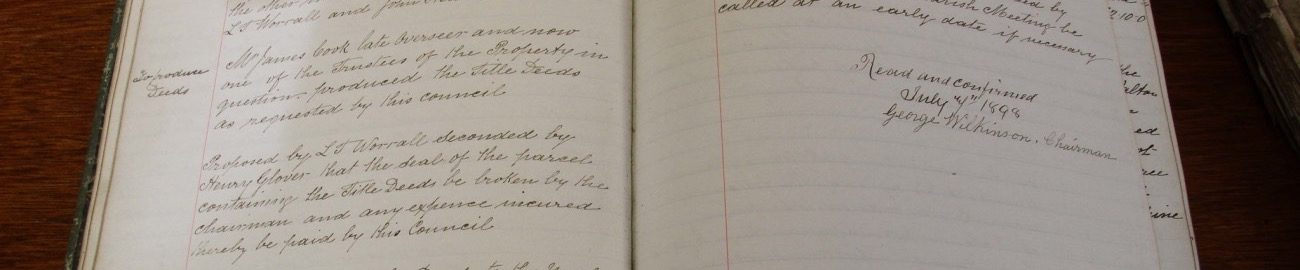 the other
L T Worrall and John
To produce
Deeds
Mr James Cook late Overseer and now
one of the Trustees of the Property in
question produced the Title Deeds
as requested by this council
Proposed by L T Worrall Seconded by
Henry Glover that the seal of the parcel
containing the Title Deeds be broken by the
chairman and any expence incured
thereby be paid by this Council
by
Parish Meeting be
called at an early date if necessary
Read and confirmed
July 4th 1898
George Wilkinson. Chairman
the
ed